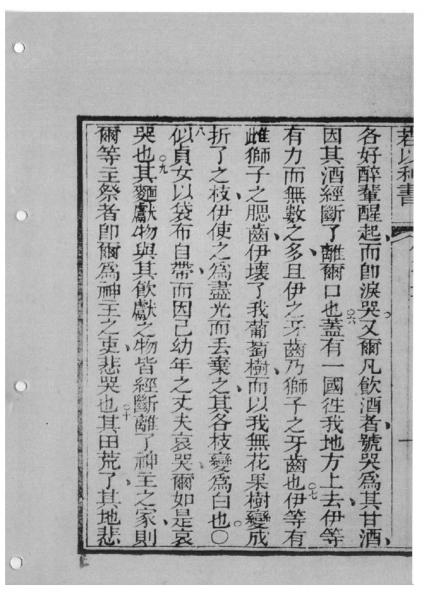 各好醉輩醒起、而即淚哭。又爾凡飲酒者、號哭爲其甘酒、
因其酒經斷了離爾口也。○六蓋有一國徃我地方上去、伊等
有力而無數之多、且伊之牙齒乃獅子之牙齒也。○七伊等有
雌獅子之腮齒。伊壞了我葡萄樹、而以我無花果樹變成
折了之枝、伊使之爲盡光而丟棄之、其各枝變爲白也。○
八似貞女以袋布自帶、而因己幼年之丈夫哀哭、爾如是哀
哭也。○九其麵獻物與其飲獻之物皆經斷離了神主之家、則
爾等主祭者即爾爲神主之吏、悲哭也。○十其田荒了、其地悲